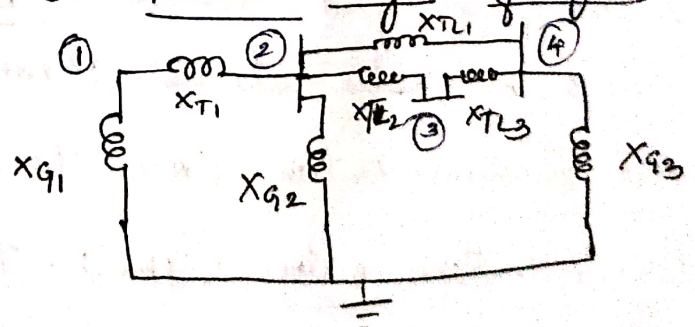 ① X_T1 ② X_TL1 ④
X_TL2 ③ X_TL3
X_G1 X_G2 X_G3